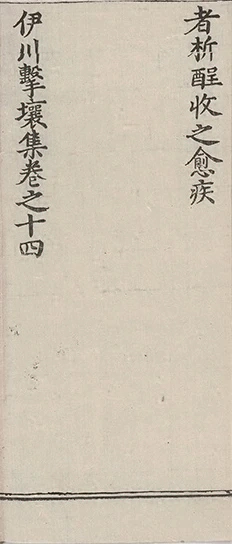 者析酲收之愈疾
伊川擊壤集卷之十四